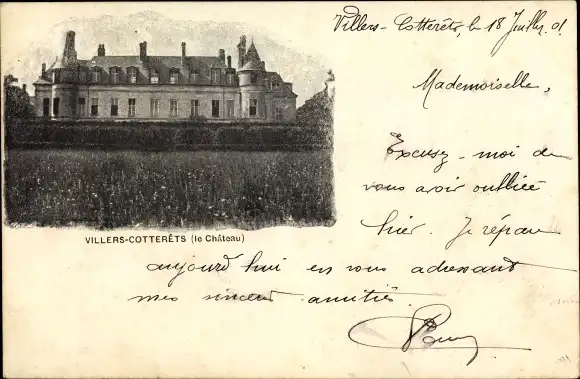 Villers-Cotterêts, le 18 Juillet 01
Mademoiselle,
Excusez-moi de
vous avoir oubliée
hier. Je répare
VILLERS-COTTERÊTS (le Château)
aujourd'hui en vous adressant
mes sincères amitiés.